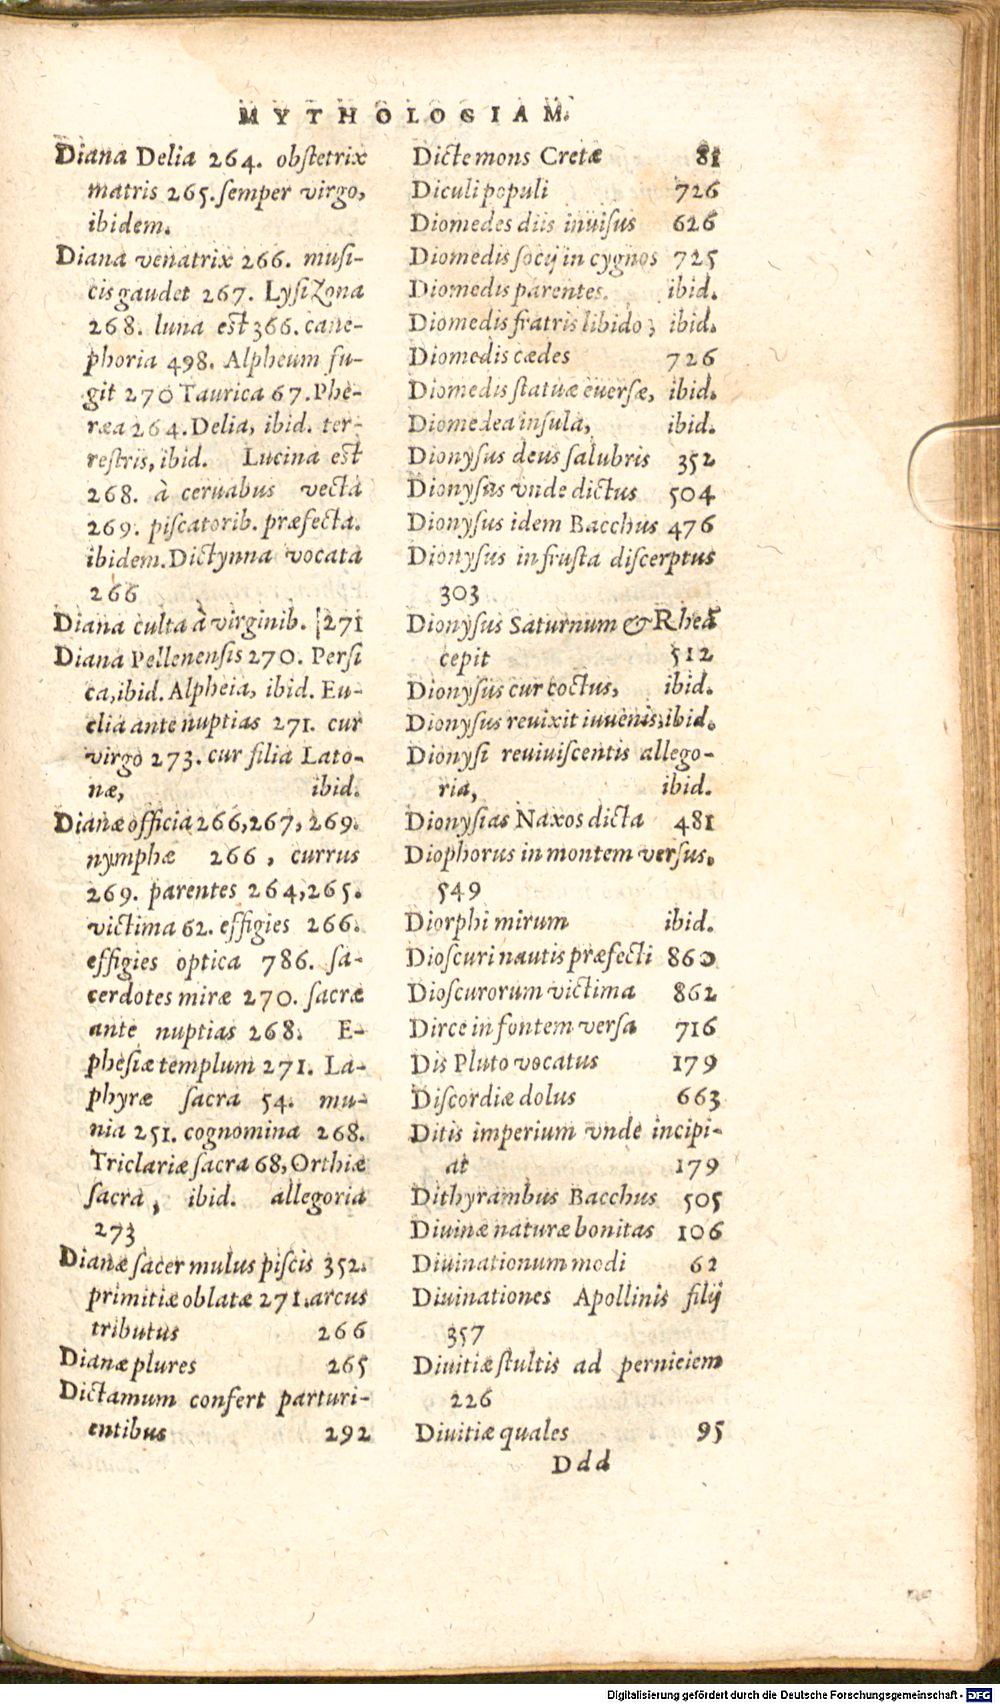 MYTHOLOGIAM.
Diana Delia 264. obſtetrix
matris 265. ſemper virgo,
ibidem.
Diana venatrix 266. muſi-
cis gaudet 267. Lyſizona
268. luna eſt 366. cane-
phoria 498. Alpheum fu-
git 270 Taurica 67. Phe-
ræa 264. Delia, ibid. ter-
reſtris, ibid. Lucina eſt
268. à ceruabus vecta
269. piſcatorib. præfecta.
ibidem. Dictynna vocata
266
Diana culta à virginib. [271
Diana Pellenenſis 270. Perſi
ca, ibid. Alpheia, ibid. Eu-
clia ante nuptias 271. cur
virgo 273. cur filia Lato-
næ, ibid.
Dianæ officia 266, 267, 269.
nymphæ 266, currus
269. parentes 264, 265.
victima 62. effigies 266.
effigies optica 786. ſa-
cerdotes miræ 270. ſacræ
ante nuptias 268. E-
pheſiæ templum 271. La-
phyræ ſacra 54. mu-
nia 251. cognomina 268.
Triclariæ ſacra 68, Orthiæ
ſacra, ibid. allegoria
273
Dianæ ſacer mulus piſcis 352.
primitiæ oblatæ 271. arcus
tributus 266
Dianæ plures 265
Dictamum confert parturi-
entibus 292
Dicte mons Cretæ 81
Diculi populi 726
Diomedes diis inuiſus 626
Diomedis ſocij in cygnos 725
Diomedis parentes. ibid.
Diomedis fratris libido; ibid.
Diomedis cædes 726
Diomedis ſtatuæ euerſæ, ibid.
Diomedea inſula, ibid.
Dionyſus deus ſalubris 352
Dionyſus vnde dictus 504
Dionyſus idem Bacchus 476
Dionyſus in fruſta diſcerptus
303
Dionyſus Saturnum & Rheā
cepit 512
Dionyſus cur coctus, ibid.
Dionyſus reuixit iuuenis, ibid.
Dionyſi reuiuiſcentis allego-
ria, ibid.
Dionyſias Naxos dicta 481
Diophorus in montem verſus.
549
Diorphi mirum ibid.
Dioſcuri nautis præfecti 860
Dioſcurorum victima 862
Dirce in fontem verſa 716
Dis Pluto vocatus 179
Diſcordiæ dolus 663
Ditis imperium vnde incipi-
at 179
Dithyrambus Bacchus 505
Diuinæ naturæ bonitas 106
Diuinationum modi 62
Diuinationes Apollinis filij
357
Diuitiæ ſtultis ad perniciem
226
Diuitiæ quales 95
Ddd
Digitalisierung gefördert durch die Deutsche Forschungsgemeinschaft - DFG